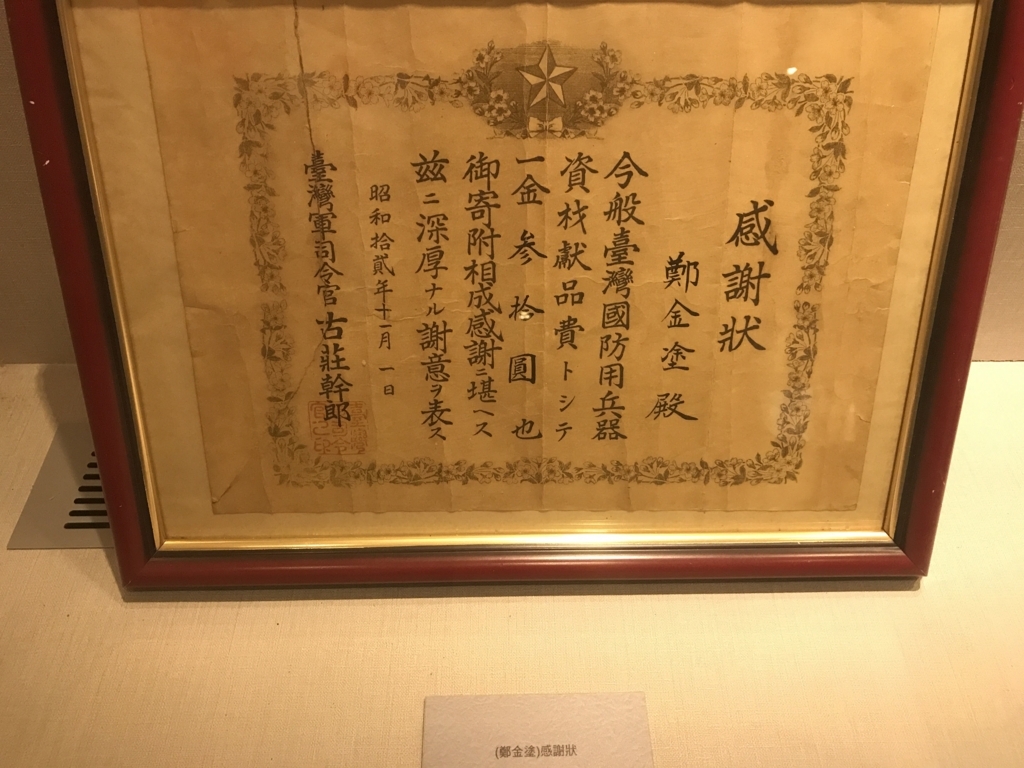 感謝狀
鄭金塗殿
今般臺灣國防用兵器
資材獻品費トシテ
一金參拾圓也
御寄附相成感謝ニ堪ヘス
茲ニ深厚ナル謝意ヲ表ス
昭和拾貳年十一月一日
臺灣軍司令官古莊幹郎
(鄭金塗)感謝狀